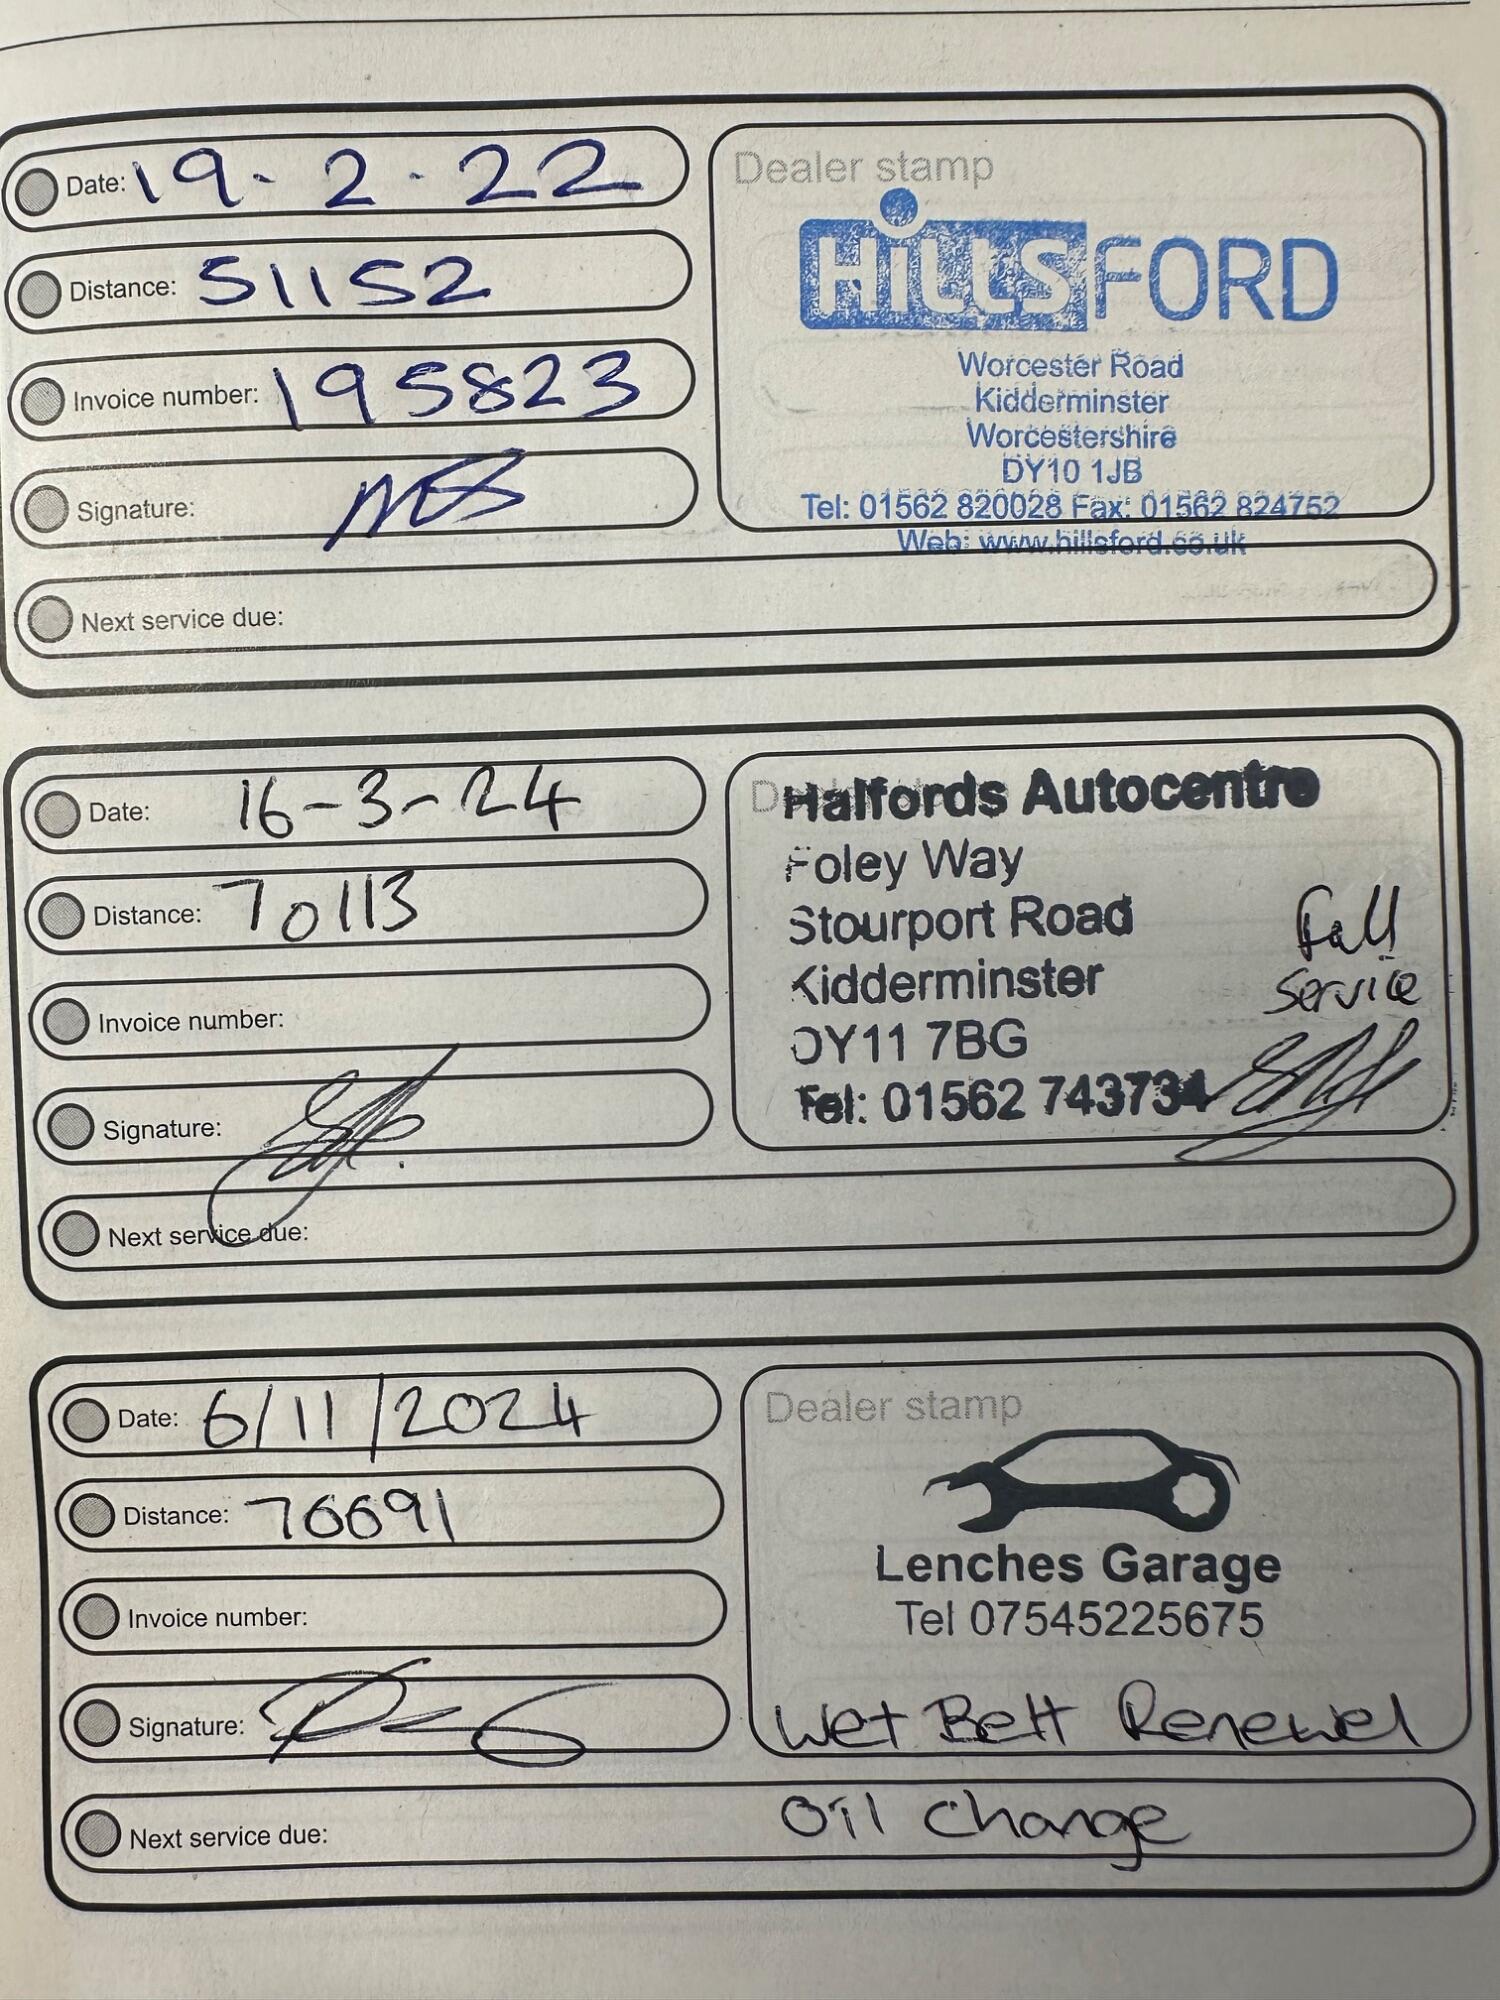 Date: 19.2.22
Distance: 51152
Invoice number: 195823
Signature:
Next service due:
Dealer stamp
HiLLS FORD
Worcester Road
Kidderminster
Worcestershire
DY10 1JB
Tel: 01562 820028 Fax: 01562 824752
Web: www.hillsford.co.uk
Date: 16-3-24
Distance: 70113
Invoice number:
Signature:
Next service due:
Halfords Autocentre
Foley Way
Stourport Road
Kidderminster
DY11 7BG
Tel: 01562 743734
Full
Service
Date: 6/11/2024
Distance: 76691
Invoice number:
Signature:
Next service due:
Dealer stamp
Lenches Garage
Tel 07545225675
Wet Belt Renewel
Oil Change